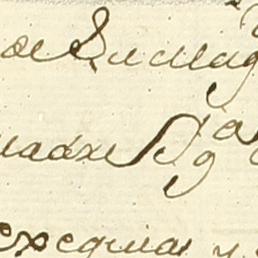 de Su Mag
madre Sra
exequias y